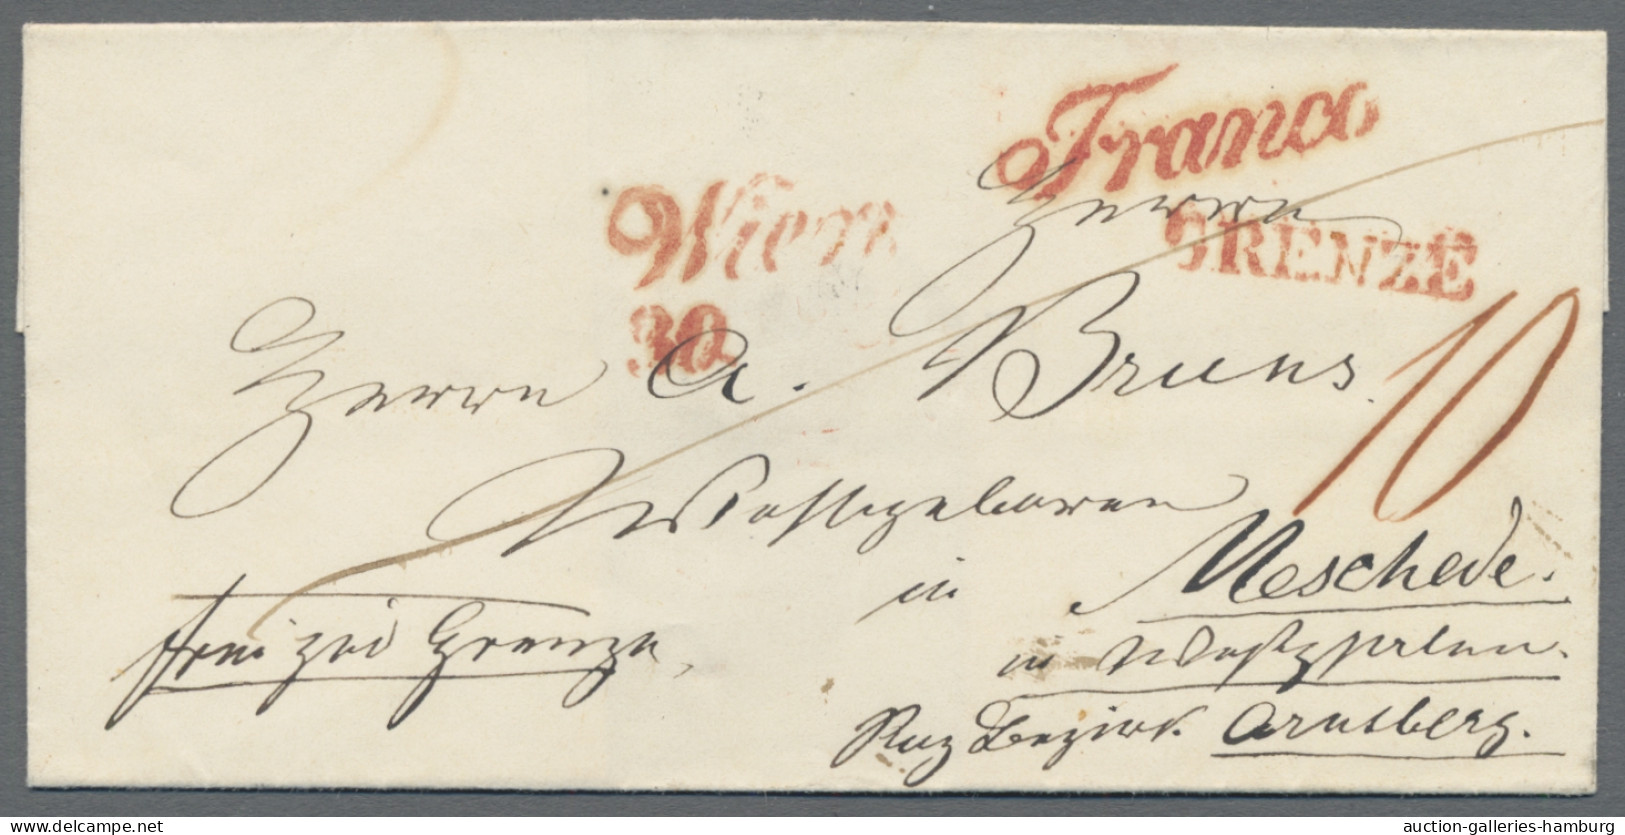 Franco
Wien
GRENZE
30
Herrn
Herrn A. Bruns.
Wohlgeboren
10
in Meschede.
frei zur Grenze
in Westphalen.
Reg Bezirk Arnsberg.
delcampe.net
auction-galleries-hamburg